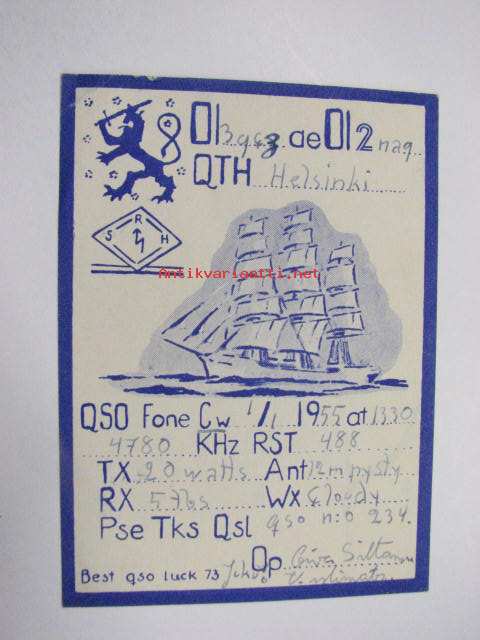 OI3qcz de OI2naq
QTH Helsinki
S R H
Antikvariaatti.net
QSO Fone Cw 1/1 1955 at 1330
4780 KHz RST 488
TX 20 watts Ant 12m pysty
RX 5 tbs Wx Cloudy
Pse Tks Qsl qso n:o 234.
Op
Best qso luck 73